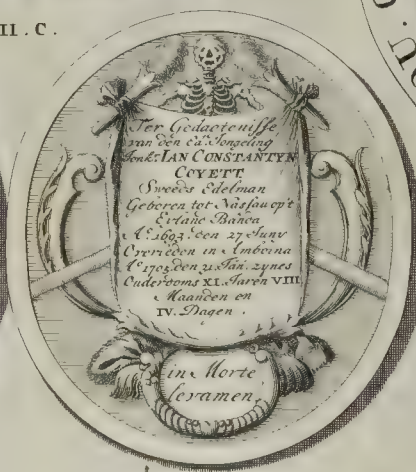 II. C.
Ter Gedactenisse
van den Ed. Jongeling
Jonkr. IAN CONSTANTYN
COYETT
Sweeds Edelman
Geboren tot Nassau op't
Eilant Banca
Ao. 1693. den 27 Juny
Overleden in Amboina
Ao. 1705. den 21. Jan. zynes
Ouderdoms XI. Jaren VIII
Maanden en
IV. Dagen.
in Morte
levamen.